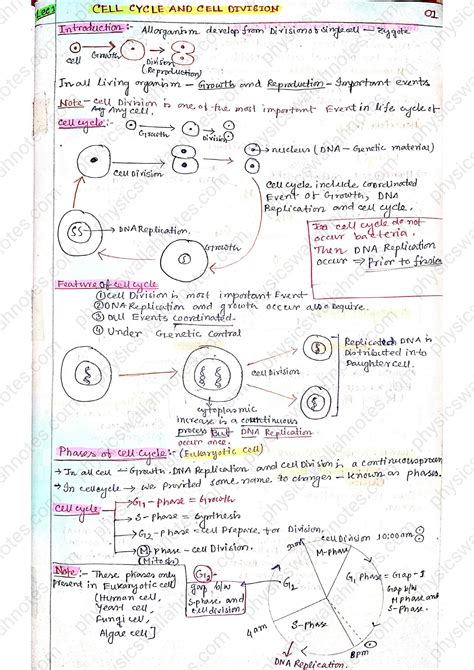 Lec 1
CELL CYCLE AND CELL DIVISION
01
Introduction:- All organism develop from Division of single cell — Zygote
cell
Growth
Division
(Reproduction)
In all living organism — Growth and Reproduction - Important events
Note - Cell Division is one of the most important Event in life cycle of
Any Any cell.
Cell cycle:-
Growth
Division
Cell Division
nucleus (DNA - Genetic material)
Cell cycle include coordinated
Event of Growth, DNA
Replication and cell cycle.
DNA Replication.
Growth
In cell cycle do not
occur bacteria.
Then DNA Replication
occur ⇒ Prior to fission
Feature of cell cycle
① Cell Division is most important Event
② DNA Replication and growth occur also Require.
③ All Events coordinated.
④ Under Genetic Control
Cell Division
Replicated DNA is
Distributed in to
Daughter cell.
cytoplasmic
increase is a continuous
process But DNA Replication
occur once.
Phases of cell cycle:- (Eukaryotic cell)
→ In all cell — Growth - DNA Replication and cell Division is a continuous process
→ In cell cycle → we provided some name to changes - known as phases.
Cell cycle
G1 - Phase = Growth
S - Phase = Synthesis
G2 - Phase = cell Prepare for Division.
M - Phase - cell Division.
(Mitosis)
Note:- These phases only
present in Eukaryotic cell
(Human cell,
Yeast cell,
Fungi cell,
Algae cell]
(G2)-
gap b/w
S-phase and
cell division
cell Division 10:00am
M-Phase
G2
G1 Phase = Gap-I
Gap b/w
M phase and
S-Phase
S-Phase
4am
8pm
DNA Replication.
physicswallahnotes.com